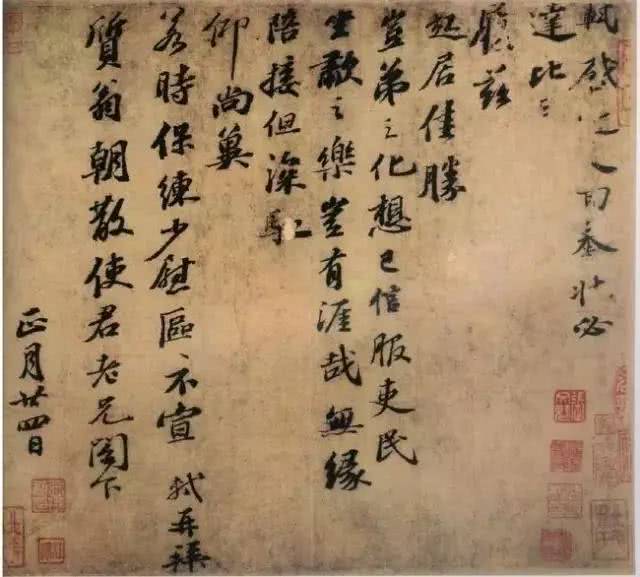 軾啟近人回奉狀必
達比
履兹
起居佳勝
豈弟之化想已信服吏民
坐歗之樂豈有涯哉無緣
陪接但深馳
仰尚冀
若時保練少慰區不宣 軾再拜
質翁朝散使君老兄閣下
正月廿四日